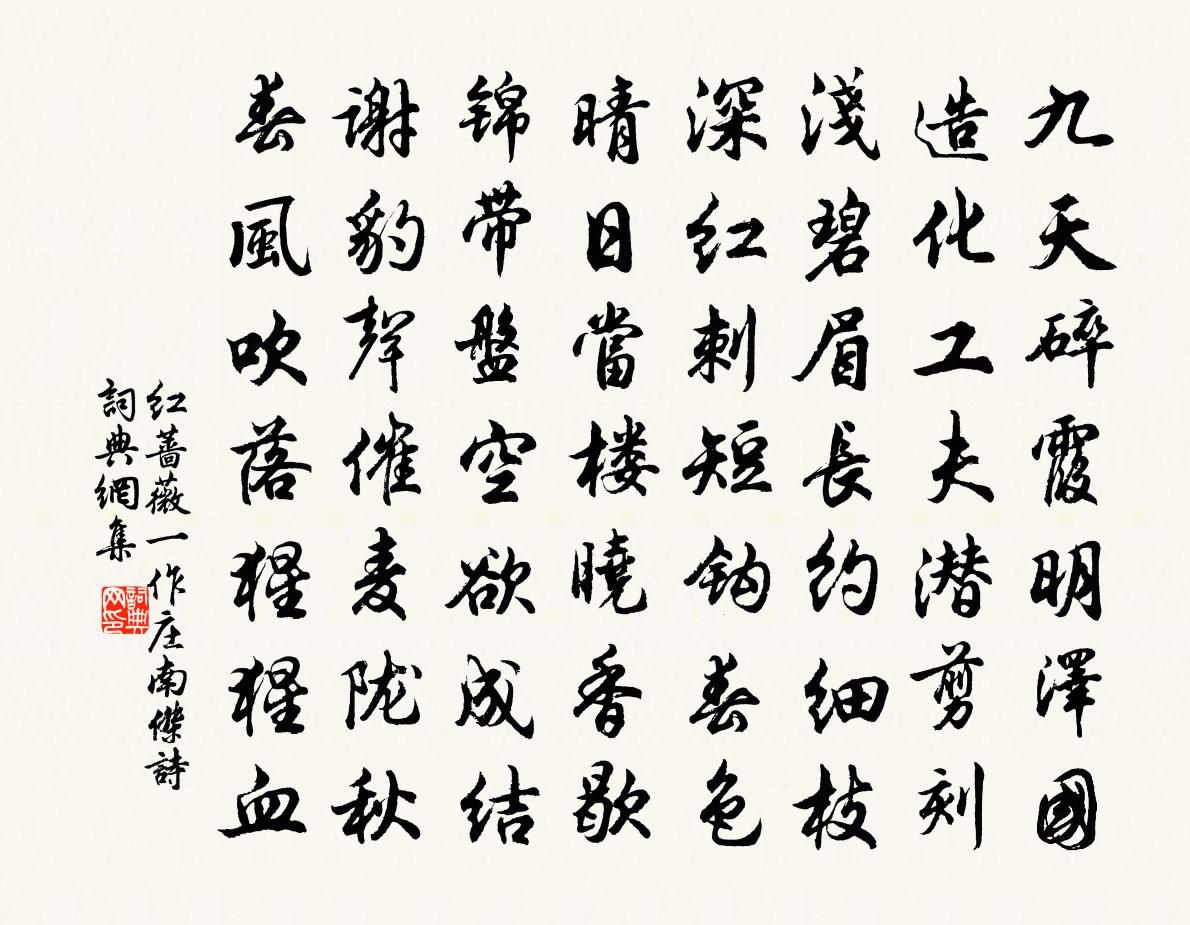 九天碎霞明澤國
造化工夫潜剪刻
淺碧眉長约细枝
深红刺短鈎春色
晴日當楼曉香歇
锦带盤空欲成结
谢豹聲催麦陇秋
春風吹落猩猩血
红蔷薇一作庄南傑詩
詞典網集
詞典网印